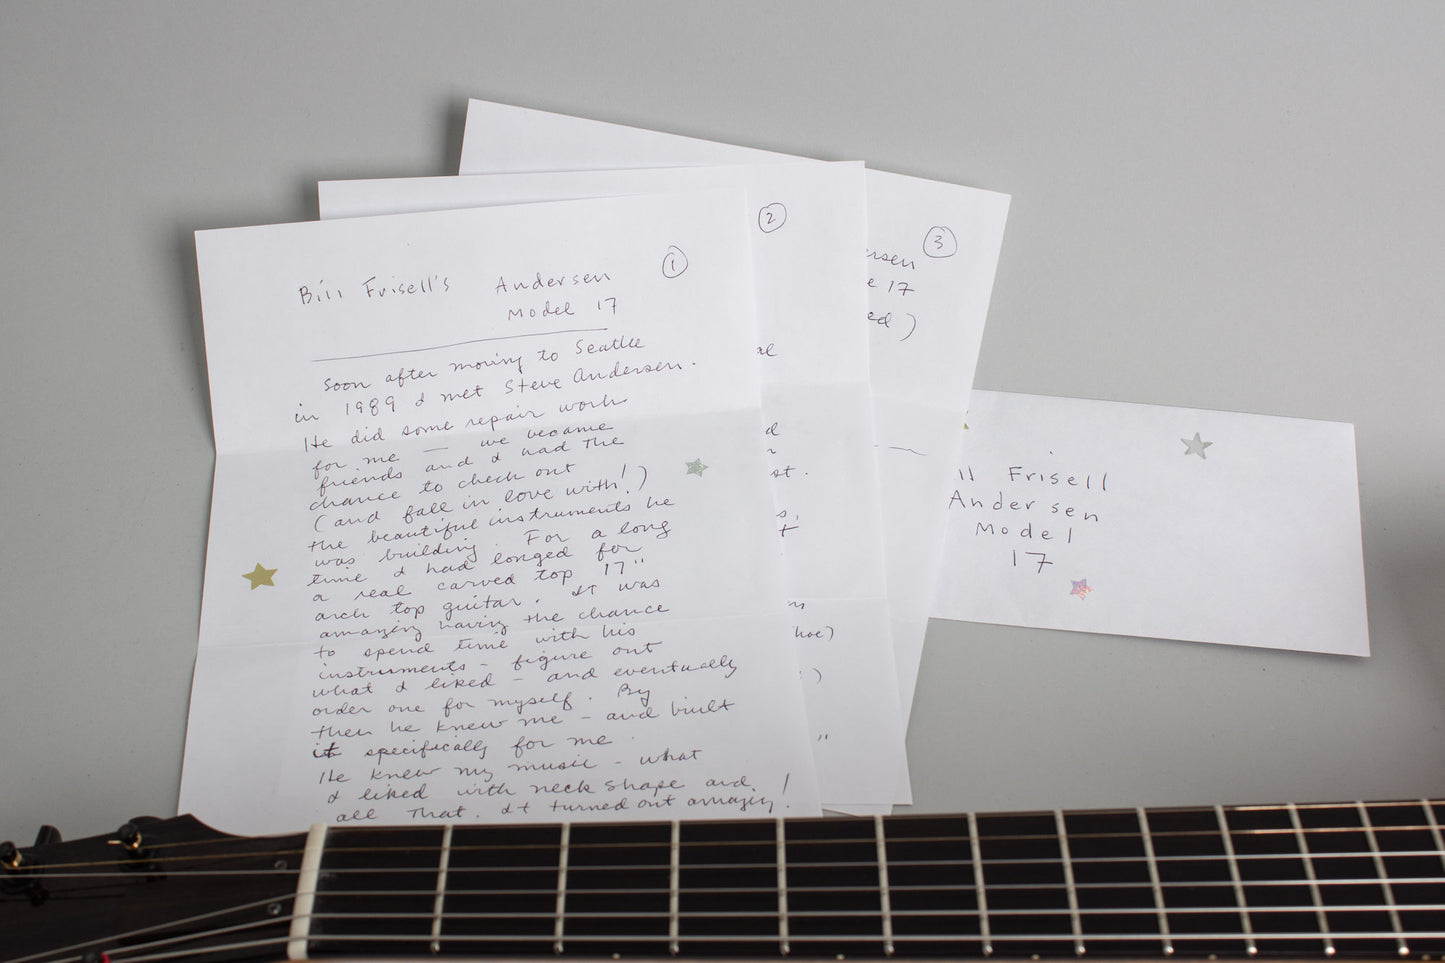 Bill Frisell's Andersen
Model 17
1
soon after moving to Seattle
in 1989 I met Steve Andersen.
He did some repair work
for me — we became
friends and I had the
chance to check out
(and fall in love with!)
the beautiful instruments he
was building. For a long
time I had longed for
a real carved top 17"
arch top guitar. It was
amazing having the chance
to spend time with his
instruments - figure out
what I liked - and eventually
order one for myself. By
then he knew me - and built
it specifically for me.
He knew my music - what
I liked with neck shape and
all that. It turned out amazing!
2
al
d
st.
s,
t
hoe)
)
"
3
rsen
e 17
ed)
ll Frisell
Andersen
Model
17